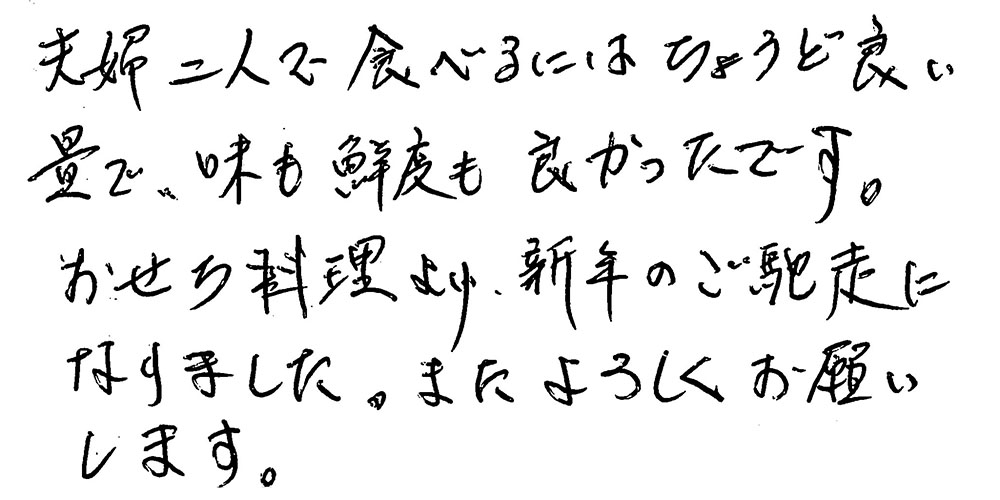 夫婦二人で食べるにはちょうど良い
量で、味も鮮度も良かったです。
おせち料理より、新年のご馳走に
なりました。またよろしくお願い
します。